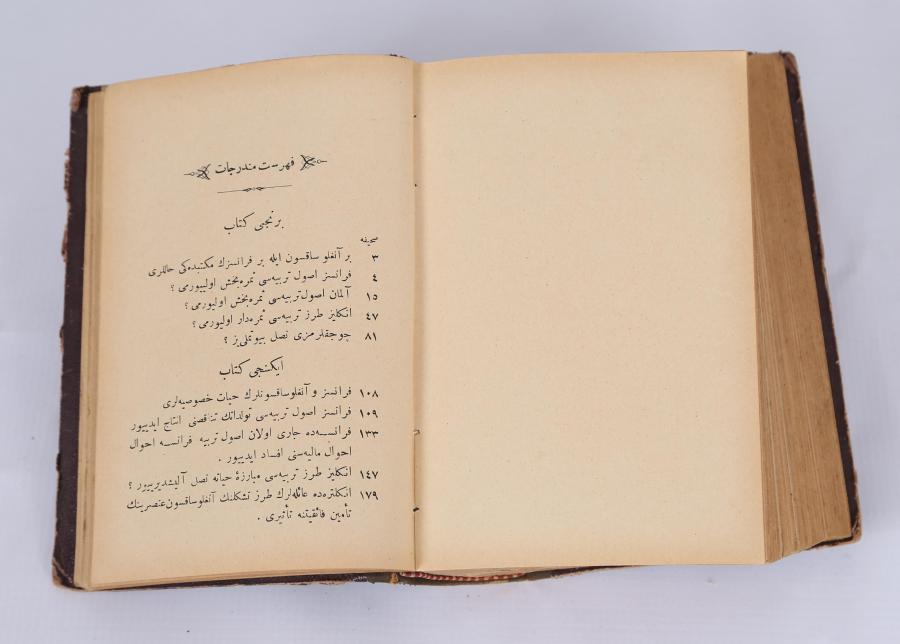 فهرست مندرجات
برنجی كتاب
صحیفه
٣ بر آنغلو ساقسون ایله بر فرانسزك مكتبده‌كی حاللری
٤ فرانسز اصول تربیه‌سی ثمره‌بخش اولیورمی؟
١٥ آلمان اصول تربیه‌سی ثمره‌بخش اولیورمی؟
٤٧ انكلیز طرز تربیه‌سی ثمره‌دار اولیورمی؟
٨١ چوجقلرمزی نصل بیوتملی‌یز ؟
ایكنجی كتاب
١٠٨ فرانسز و آنغلوساقسونلرك حیات خصوصیه‌لری
١٠٩ فرانسز اصول تربیه‌سی تولداتك تناقصنی انتاج ایدییور
١٣٣ فرانسه‌ده جاری اولان اصول تربیه فرانسه احوال
احوال مالیه‌سنی افساد ایدییور .
١٤٧ انكلیز طرز تربیه‌سی مبارزهٔ حیاته نصل آلیشدیرییور ؟
١٧٩ انكلتره‌ده عائله‌لرك طرز تشكلنك آنغلوساقسون عنصرینك
تأمین فائقیتنه تأثیری .